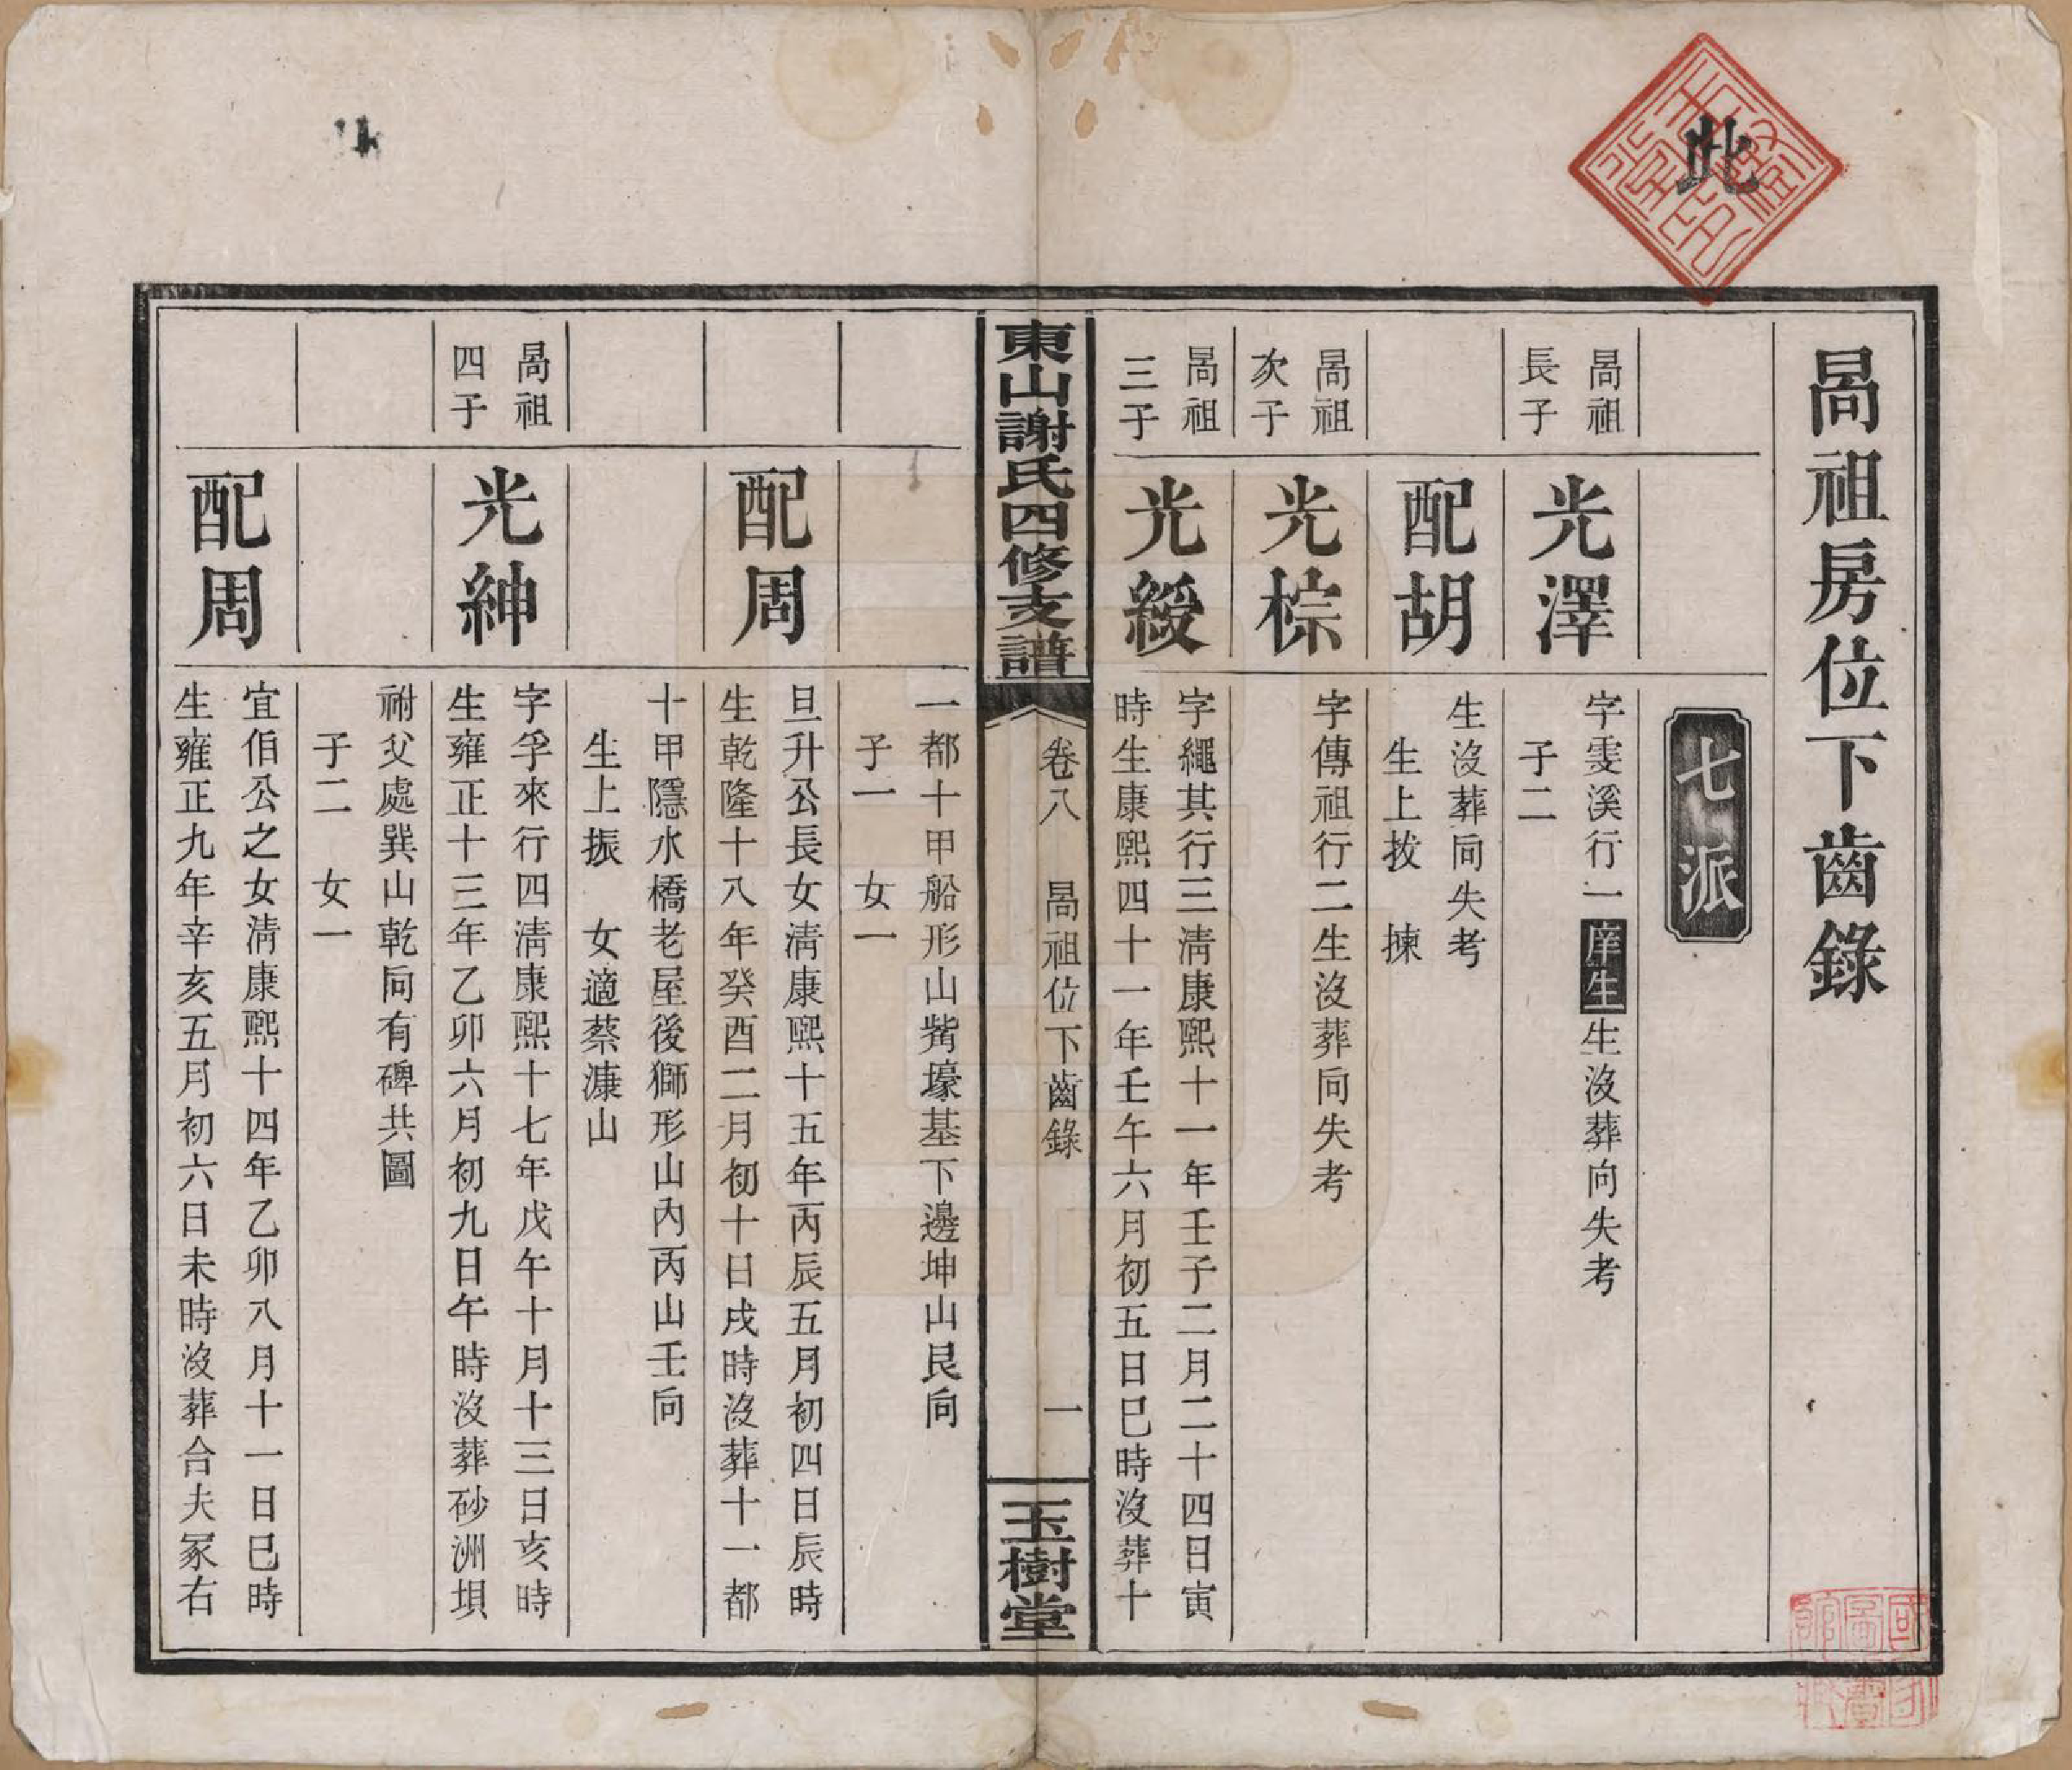 此
昺祖房位下齒錄
七派
昺祖
長子
光澤
字雯溪行一庠生生沒葬向失考
子二
配胡
生沒葬向失考
生上拔　揀
昺祖
次子
光棕
字傳祖行二生沒葬向失考
昺祖
三子
光綬
字繩其行三淸康熙十一年壬子二月二十四日寅
時生康熙四十一年壬午六月初五日巳時沒葬十
東山謝氏四修支譜
卷八　昺祖位下齒錄
一
玉樹堂
一都十甲船形山觜壕基下邊坤山艮向
子一　女一
配周
旦升公長女淸康熙十五年丙辰五月初四日辰時
生乾隆十八年癸酉二月初十日戌時沒葬十一都
十甲隱水橋老屋後獅形山內丙山壬向
生上振　女適蔡漮山
昺祖
四子
光紳
字孚來行四淸康熙十七年戊午十月十三日亥時
生雍正十三年乙卯六月初九日午時沒葬砂洲垻
祔父處巽山乾向有碑共圖
子二　女一
配周
宜伯公之女淸康熙十四年乙卯八月十一日巳時
生雍正九年辛亥五月初六日未時沒葬合夫冢右